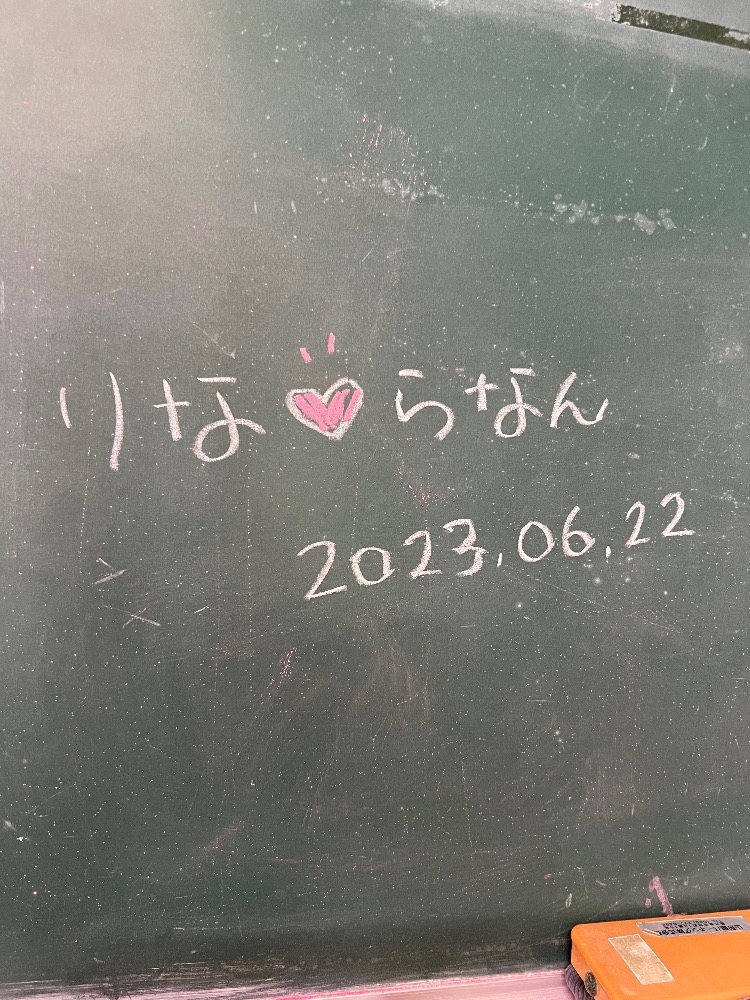 りな♡らなん
2023.06.22